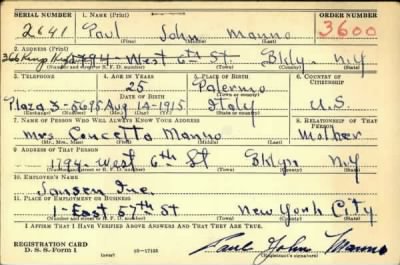 SERIAL NUMBER 1. NAME (Print) ORDER NUMBER
2641 Paul John Manno 3600
(First) (Middle) (Last)
2. ADDRESS (Print)
1794 West 6th St. Bkly. N.Y
(Number and street or R. F. D. number) (Town) (County) (State)
3. TELEPHONE 4. AGE IN YEARS 5. PLACE OF BIRTH 6. COUNTRY OF CITIZENSHIP
25 Palermo
DATE OF BIRTH (Town or county)
Plaza 3-5695 Aug 14-1915 Italy U.S.
(Exchange) (Number) (Mo.) (Day) (Yr.) (State or country)
7. NAME OF PERSON WHO WILL ALWAYS KNOW YOUR ADDRESS 8. RELATIONSHIP OF THAT PERSON
Mrs. Concetta Manno Mother
(Mr., Mrs., Miss) (First) (Middle) (Last)
9. ADDRESS OF THAT PERSON
1794-West 6th St Bklyn N.Y
(Number and street or R. F. D. number) (Town) (County) (State)
10. EMPLOYER'S NAME
Jansen Inc.
11. PLACE OF EMPLOYMENT OR BUSINESS
1-East 57th St New York City
(Number and street or R. F. D. number) (Town) (County) (State)
I AFFIRM THAT I HAVE VERIFIED ABOVE ANSWERS AND THAT THEY ARE TRUE.
REGISTRATION CARD
D. S. S. Form 1 16-17105 Paul John Manno
(Registrant's signature)